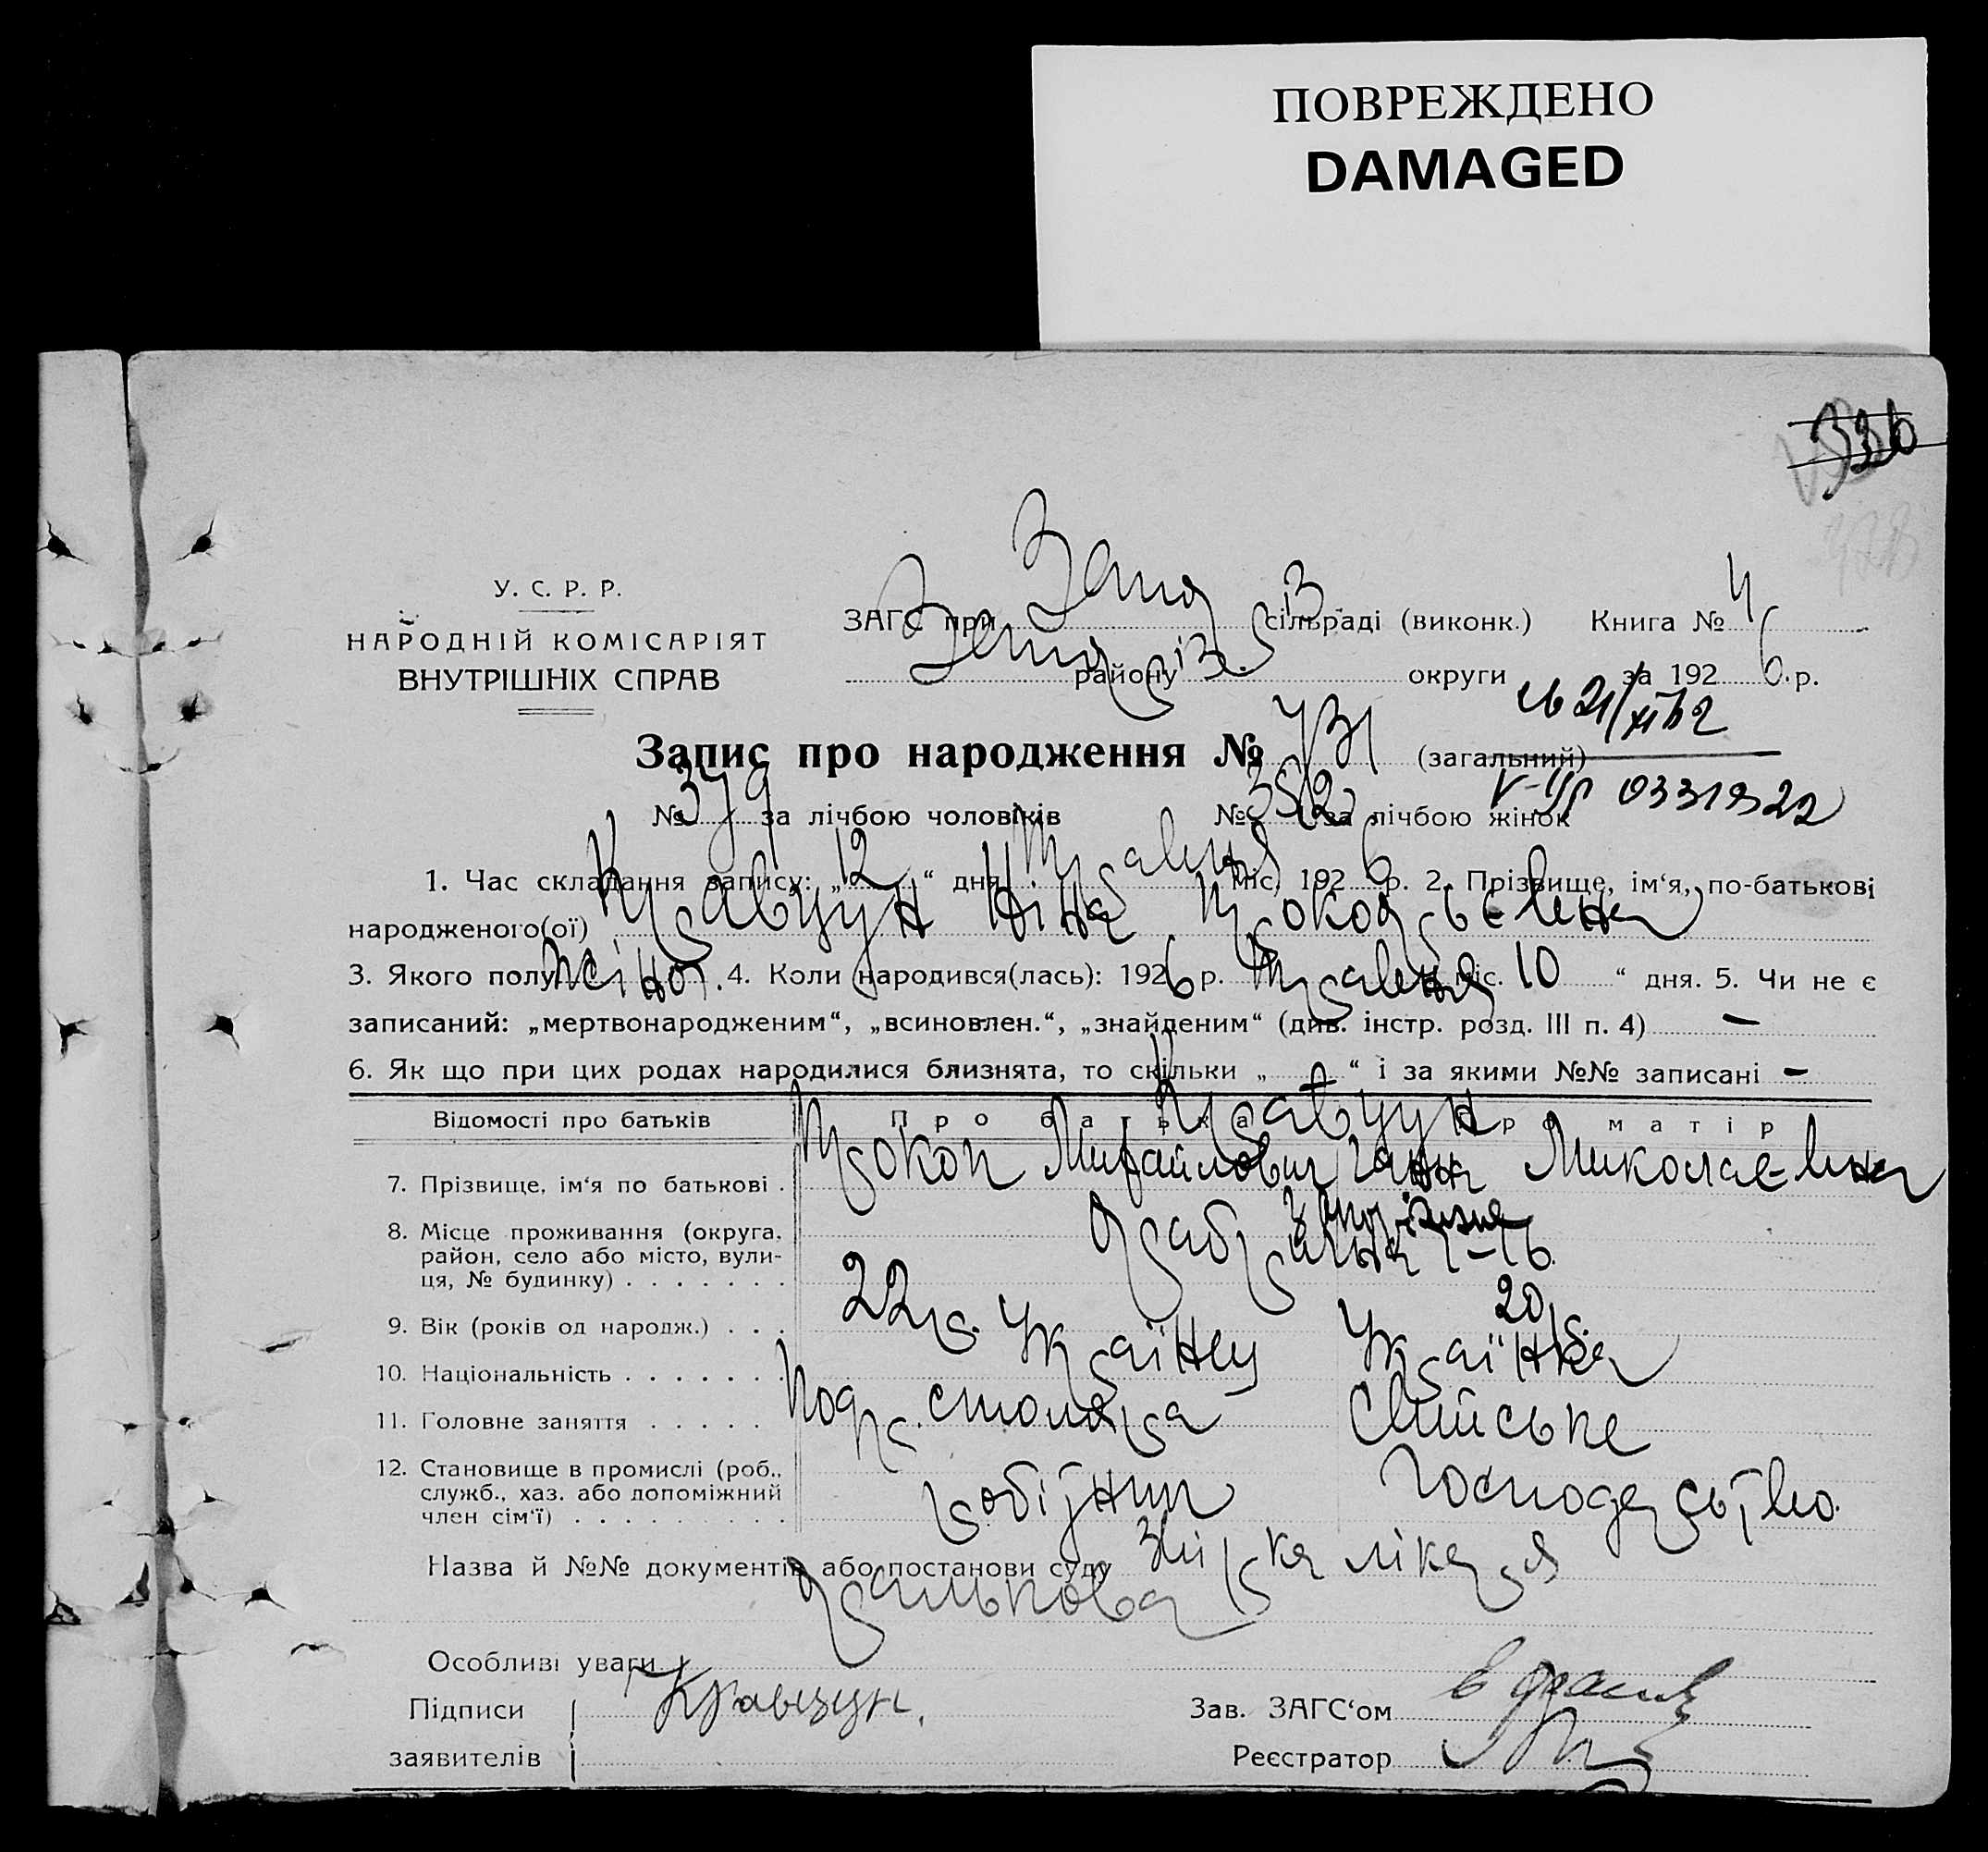 ПОВРЕЖДЕНО
DAMAGED
326
У. С. Р. Р.
НАРОДНІЙ КОМІСАРІЯТ
ВНУТРІШНІХ СПРАВ
ЗАГС при Запоріз сільраді (виконк.) Книга № 4
Запоріз. району округи за 1926 р.
Запис про народження № 731 (загальний)
№ 379 за лічбою чоловіків № 352 за лічбою жінок
1. Час складання запису: „12“ дня Травня міс. 1926 р. 2. Прізвище, ім‘я, по-батькові
народженого(ої) Кравцун Ніна Прокопьєвна
3. Якого полу жіноч. 4. Коли народився(лась): 1926 р. Травня міс. 10 “ дня. 5. Чи не є
записаний: „мертвонародженим“, „всиновлен.“, „знайденим“ (див. інстр. розд. III п. 4) —
6. Як що при цих родах народилися близнята, то скільки „ “ і за якими №№ записані —
Відомості про батьків Про батька Про матір
Кравцун
7. Прізвище, ім‘я по батькові . Прокоп Михайлович Ганна Миколаєвна
8. Місце проживання (округа,
район, село або місто, вули-
ця, № будинку) . . . . . . .
9. Вік (років од народж.) . . . 22 р. 20 р.
10. Національність . . . . . . . Українец Українка
11. Головне заняття . . . . . столяра
12. Становище в промислі (роб.,
служб., хаз. або допоміжний
член сім‘ї) . . . . . . . . . робітник
Назва й №№ документів або постанови суду лікаря
Особливі уваги
Підписи Кравцун. Зав. ЗАГС‘ом
заявителів Реєстратор